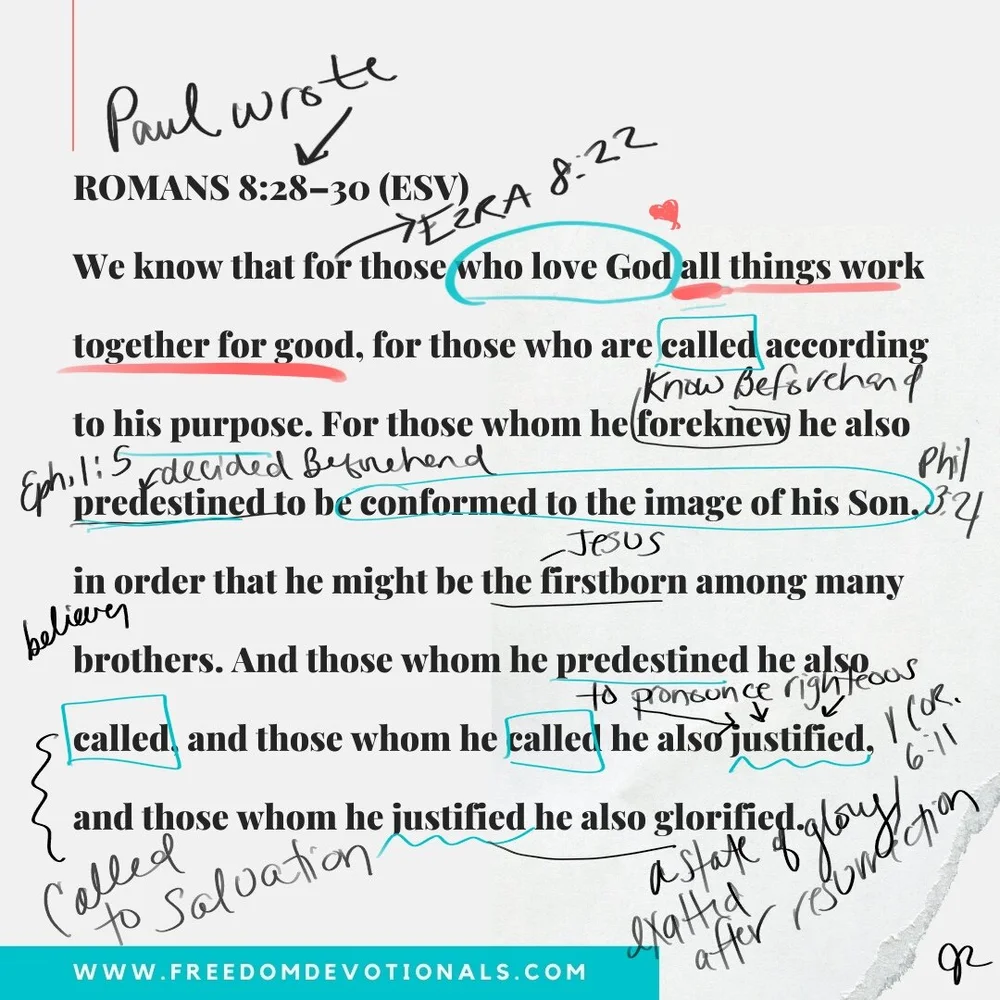 Paul wrote
ROMANS 8:28–30 (ESV)
EZRA 8:22
We know that for those who love God all things work
together for good, for those who are called according
Know Beforehand
to his purpose. For those whom he foreknew he also
Eph. 1:5 decided Beforehend
Phil
3:21
predestined to be conformed to the image of his Son,
Jesus
in order that he might be the firstborn among many
believer
brothers. And those whom he predestined he also
to pronounce righteous
called, and those whom he called he also justified,
1 COR.
6:11
and those whom he justified he also glorified.
Called
to Salvation
a state of glory/
exalted
after resurrection
WWW.FREEDOMDEVOTIONALS.COM